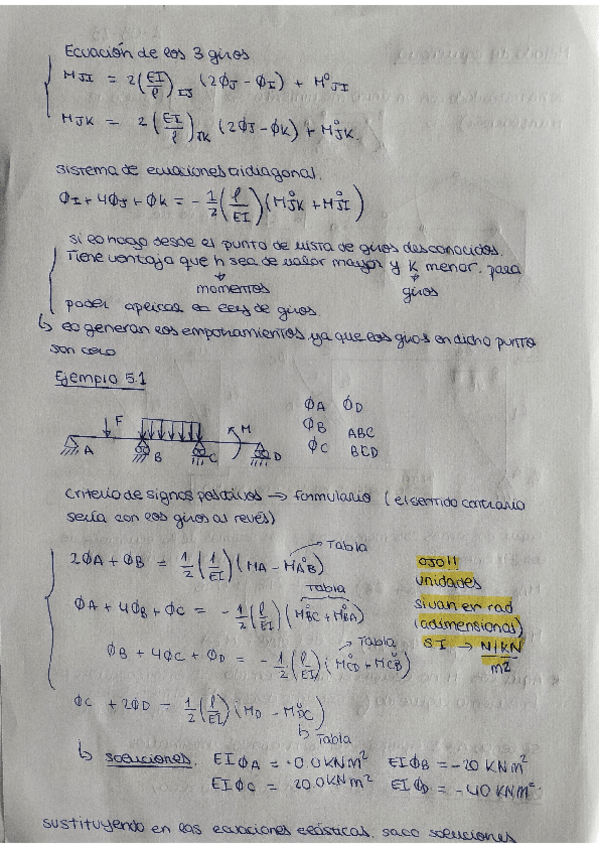 Ecuación de los 3 giros
MJI = 2(EI/ℓ)IJ (2ØJ - ØI) + M°JI
MJK = 2(EI/ℓ)JK (2ØJ - ØK) + M°JK
sistema de ecuaciones tridiagonal.
ØI + 4ØJ + ØK = - 1/2 (ℓ/EI)(M°JK + M°JI)
si lo hago desde el punto de vista de giros desconocidos.
Tiene ventaja que h sea de valor mayor y K menor. para
momentos giros
poder aplicar la ley de giros.
↳ lo generan los empotramientos ya que los giros en dicho punto
son cero
Ejemplo 5.1
F M
A B C D
ØA ØD
ØB ABC
ØC BCD
Criterio de signos positivos → formulario (el sentido contrario
sería con los giros al revés)
Tabla
2ØA + ØB = 1/2 (1/EI)(MA - M°AB)
Tabla
ØA + 4ØB + ØC = - 1/2 (ℓ/EI)(M°BC + M°BA)
Tabla
ØB + 4ØC + ØD = - 1/2 (ℓ/EI)(M°CD + M°CB)
ØC + 2ØD = 1/2 (ℓ/EI)(MD - M°DC)
↳ Tabla
OJO!!
unidades
si van en rad
(adimensional)
SI → N/KN
m2
↳ soluciones. EIØA = 0.0KNm² EIØB = -20 KNm²
EIØC = 20.0KNm² EIØD = -40 KNm²
sustituyendo en las ecuaciones elásticas. saco soluciones